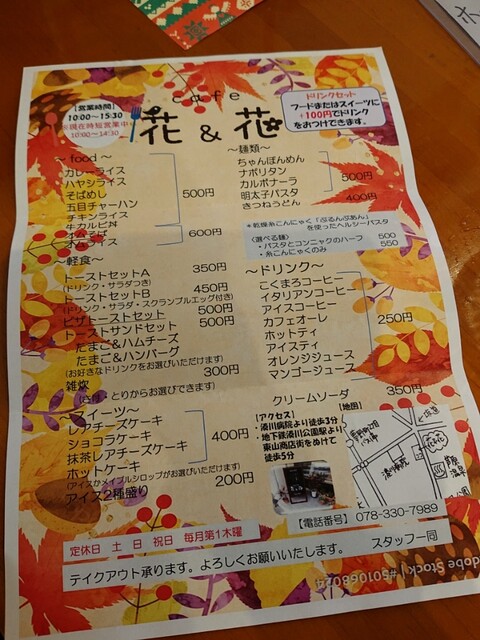 cafe
花 & 花
【営業時間】
10:00～15:30
※現在時短営業中※
10:00～14:30
ドリンクセット
フードまたはスイーツに
+100円でドリンク
をおつけできます。
～ food ～
カレーライス
ハヤシライス
そばめし
五目チャーハン
チキンライス
500円
牛カルビ丼
オムそば
オムライス
600円
～麺類～
ちゃんぽんめん
ナポリタン
カルボナーラ
明太子パスタ
500円
きつねうどん
400円
*乾燥糸こんにゃく「ぷるんぷあん」
を使ったヘルシーパスタ
〈選べる麺〉
・パスタとコンニャクのハーフ 500
・糸こんにゃくのみ 550
～軽食～
トーストセットA 350円
(ドリンク・サラダつき)
トーストセットB 450円
(ドリンク・サラダ・スクランブルエッグ付き)
ピザトーストセット 500円
トーストサンドセット 500円
たまご&ハムチーズ
たまご&ハンバーグ
(お好きなドリンクをお選びいただけます)
雑炊 300円
とりからお選びできます)
～ドリンク～
こくまろコーヒー
イタリアンコーヒー
アイスコーヒー
カフェオーレ
ホットティ
アイスティ
オレンジジュース
マンゴージュース
250円
クリームソーダ 350円
～スイーツ～
レアチーズケーキ
ショコラケーキ
抹茶レアチーズケーキ
ホットケーキ
400円
(アイスかメイプルシロップがお選びいただけます)
アイス2種盛り 200円
【アクセス】
・湊川病院より徒歩3分
・地下鉄湊川公園駅より
東山商店街をぬけて
徒歩5分
【地図】
湊川病院
【電話番号】 078-330-7989
定休日 土 日 祝日 毎月第1木曜
テイクアウト承ります。よろしくお願いいたします。 スタッフ一同
dobe Stock | #501068074